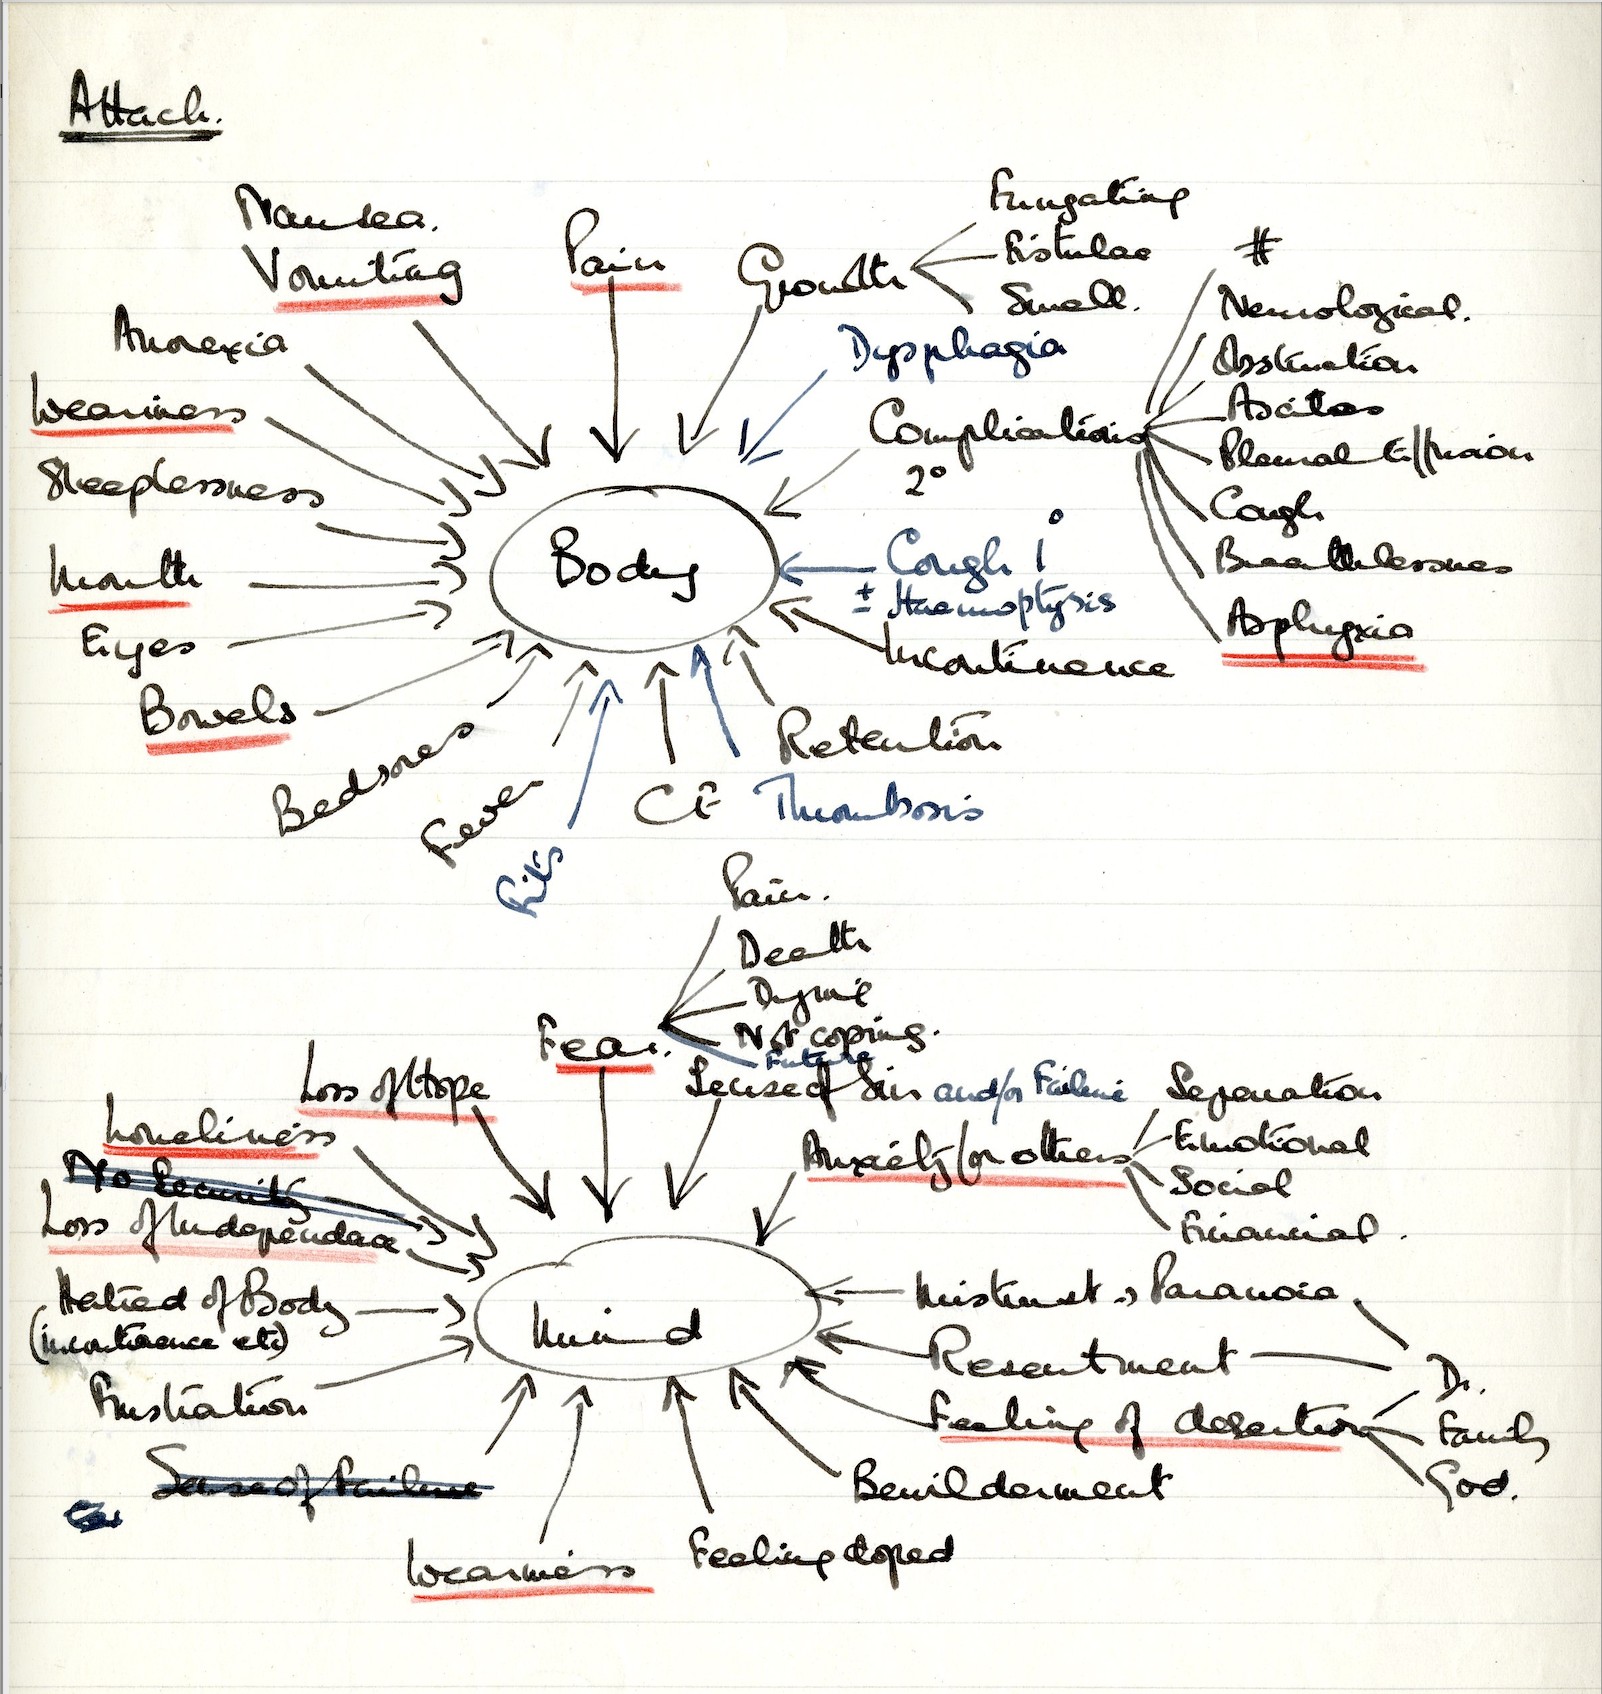 Attach.
Nausea.
Vomiting
Pain
Growth
Fungating
Fistulae
Smell.
Anorexia
Dysphagia
#
Neurological.
Obstruction
Ascites
Pleural Effusion
Cough
Breathlessness
Asphyxia
Weariness
Complications
2°
Sleeplessness
Body
Cough 1°
± Haemoptysis
Mouth
Incontinence
Eyes
Bowels
Retention
Bedsores
Fever
Fits
CF
Thrombosis
Pain.
Death
Dying
Not coping.
Future
Fear.
Loss of Hope
Sense of Sin and/or Failure
Separation
Emotional
Social
Financial.
Loneliness
Anxiety for others
No Security
Loss of Independence
Hatred of Body
(incontinence etc)
Mind
Mistrust → Paranoia
Resentment
Dr.
Family
God.
Frustration
Feeling of desertion
Sense of Failure
Bewilderment
Weariness
Feeling doped